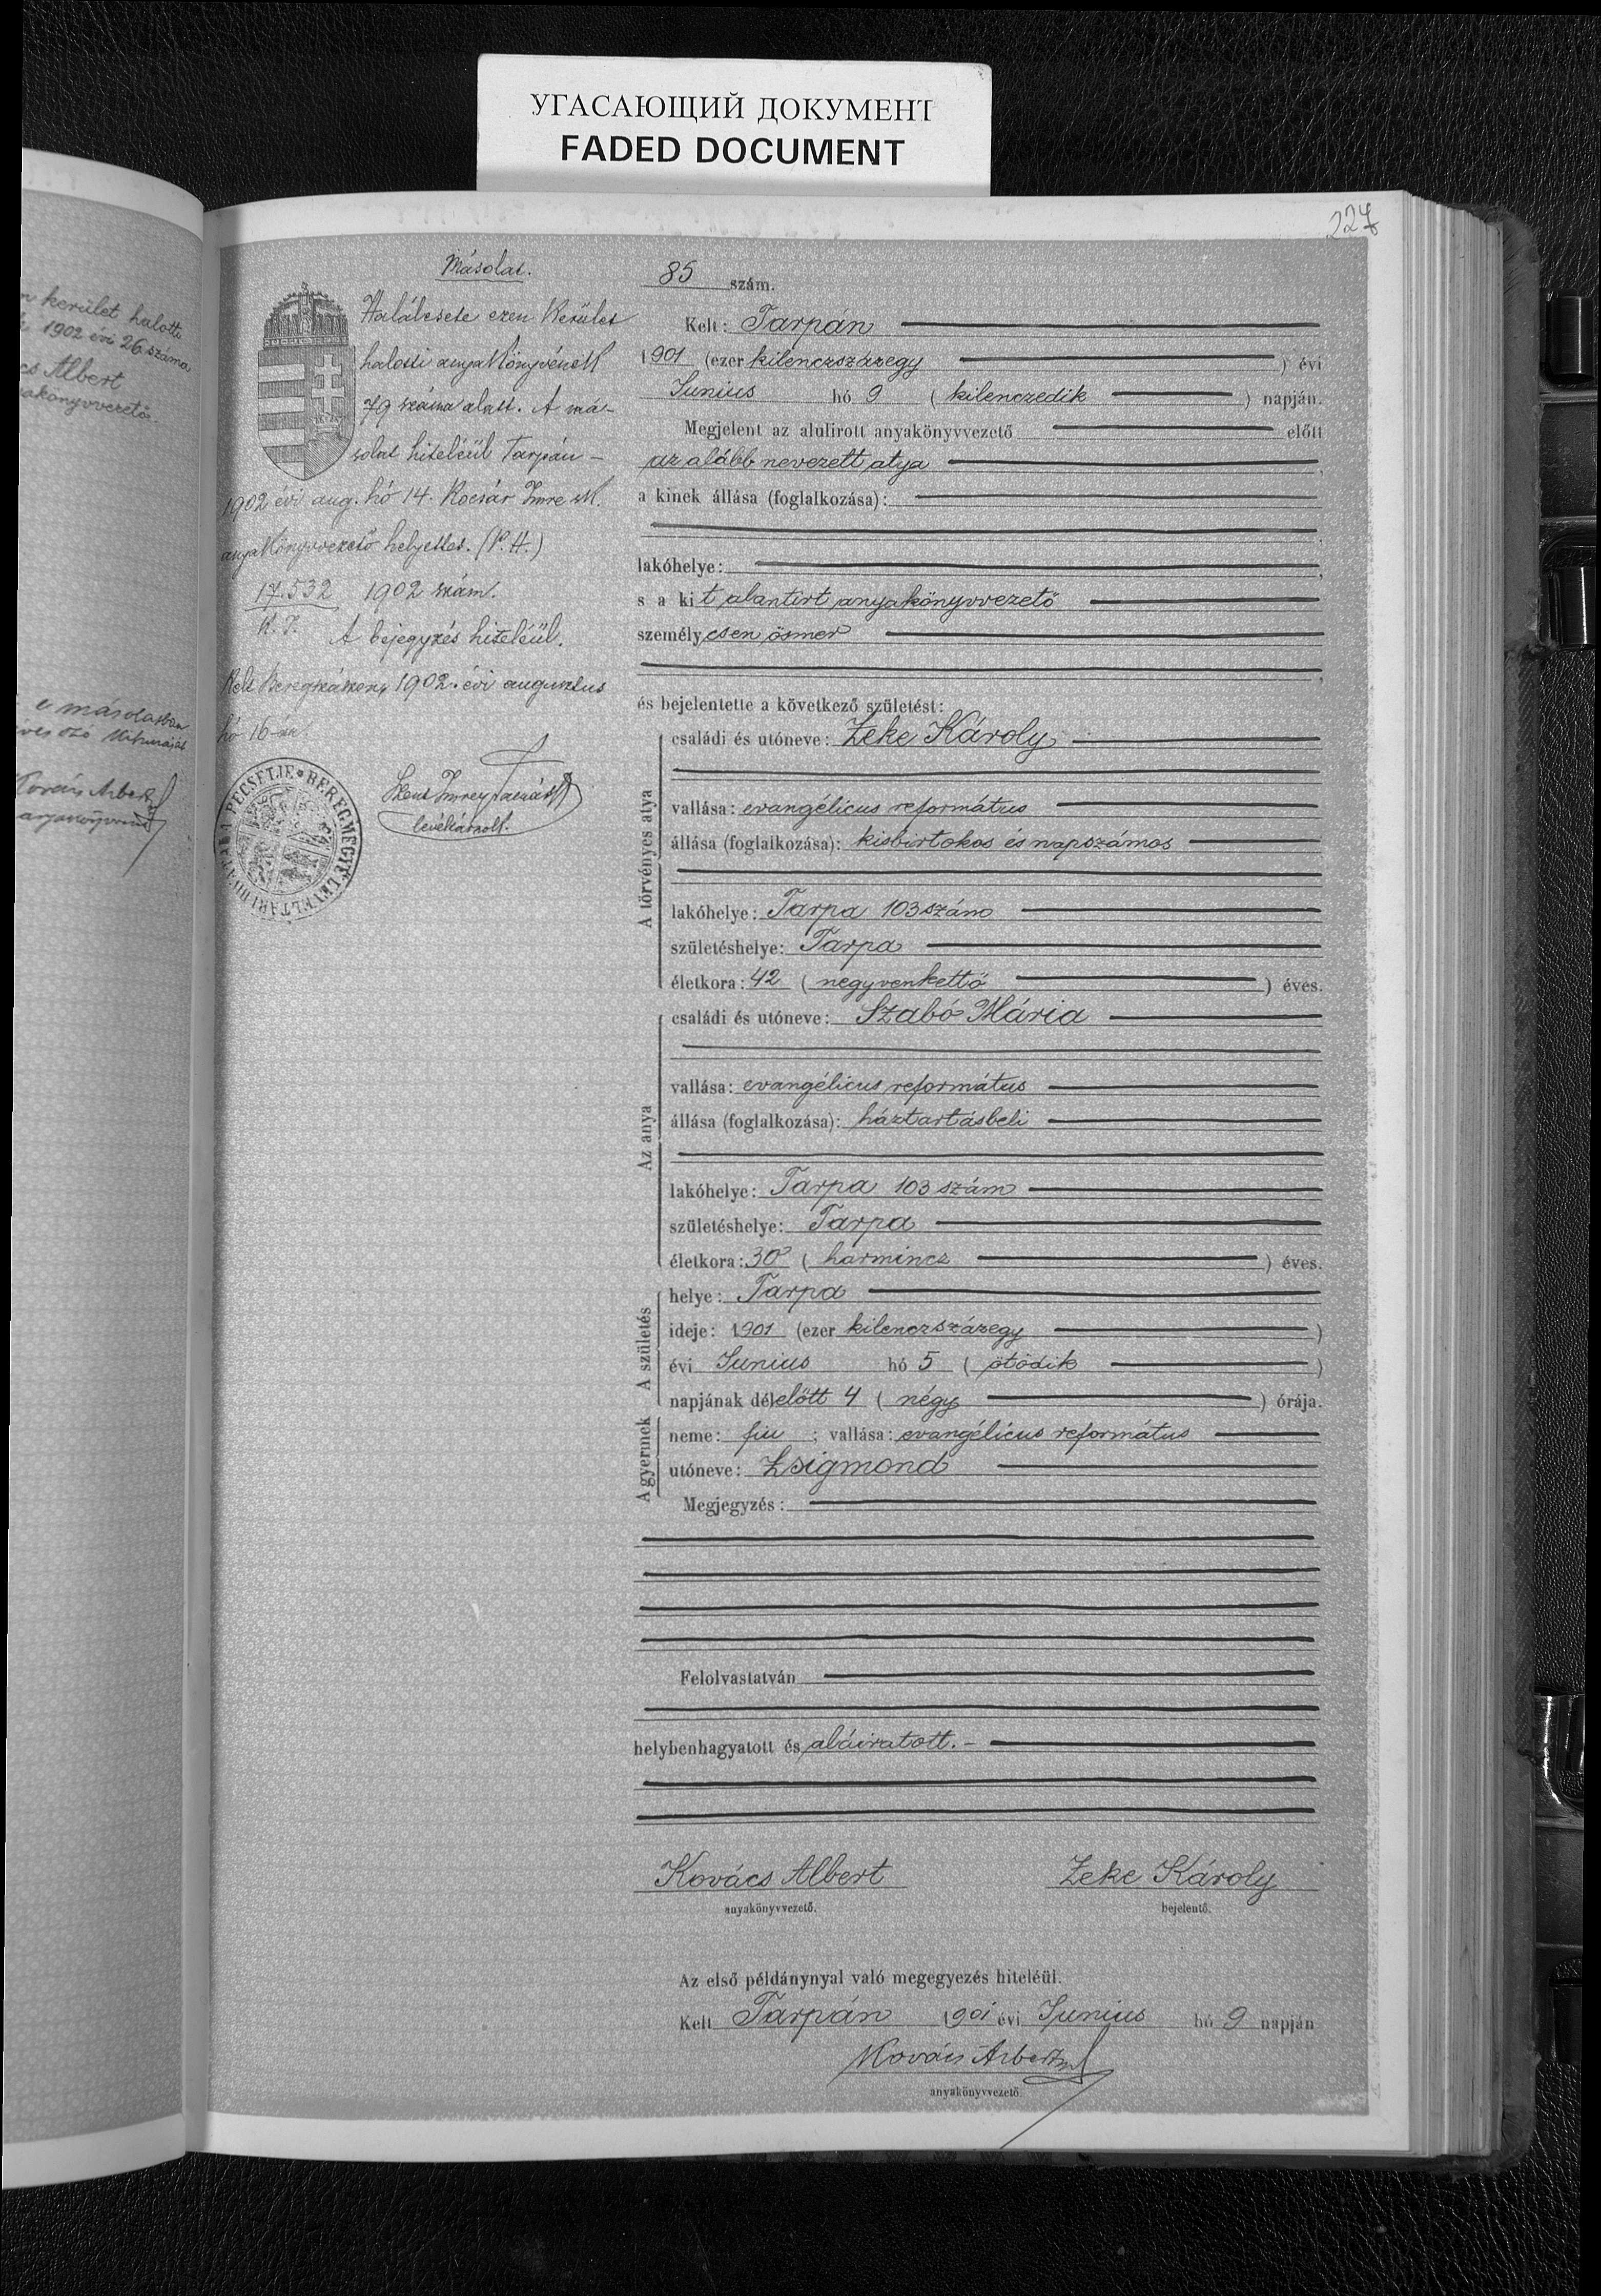 УГАСАЮЩИЙ ДОКУМЕНТ
FADED DOCUMENT
227
kerület halotti
1902 évi 26 száma
Albert
Másolat.
Halálesete ezen Kerület
halotti anyakönyvének
79 száma alatt. A má-
solat hiteléül Tarpán –
1902 évi aug. hó 14. Kocsár Imre sk.
anyakönyvvezető helyettes. (P. H.)
17.532 1902 szám.
A bejegyzés hiteléül.
Kelt Beregszászon, 1902. évi augusztus
hó 16-án.
levéltárnok.
PECSETJE * BEREGMEGYE LEVELTARI
85 szám.
Kelt: Tarpán
1901 (ezer kilenczszázegy ) évi
Junius hó 9 ( kilenczedik ) napján.
Megjelent az alulirott anyakönyvvezető előtt
az alább nevezett atya ,
a kinek állása (foglalkozása):
lakóhelye: ,
s a kit alantirt anyakönyvvezető
személyesen ösmer
és bejelentette a következő születést:
A törvényes atya
családi és utóneve: Zeke Károly
vallása: evangélicus református
állása (foglalkozása): kisbirtokos és napszámos
lakóhelye: Tarpa 103 szám
születéshelye: Tarpa
életkora: 42 ( negyvenkettő ) éves.
Az anya
családi és utóneve: Szabó Mária
vallása: evangélicus református
állása (foglalkozása): háztartásbeli
lakóhelye: Tarpa 103 szám
születéshelye: Tarpa
életkora: 30 ( harmincz ) éves.
A születés
helye: Tarpa
ideje: 1901 (ezer kilenczszázegy )
évi Junius hó 5 ( ötödik )
napjának délelőtt 4 ( négy ) órája.
A gyermek
neme: fiu ; vallása: evangélicus református
utóneve: Zsigmond
Megjegyzés:
Felolvastatván
helybenhagyatott és aláiratott. –
Kovács Albert Zeke Károly
anyakönyvvezető. bejelentő.
Az első példánynyal való megegyezés hiteléül.
Kelt Tarpán 1901 évi Junius hó 9 napján
Kovács Albert
anyakönyvvezető.